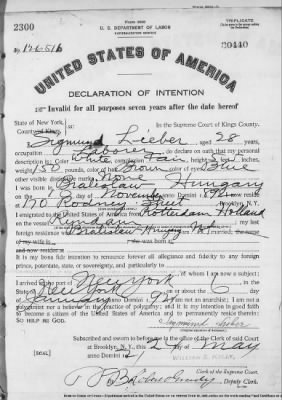 FORM 2202
TRIPLICATE
2300
U. S. DEPARTMENT OF LABOR
NATURALIZATION SERVICE
No. 126516
20440
UNITED STATES OF AMERICA
DECLARATION OF INTENTION
Invalid for all purposes seven years after the date hereof
State of New York,
In the Supreme Court of Kings County.
County of Kings,
I, Sigmund Lieber, aged 28 years,
occupation Laborer, do declare on oath that my personal
description is: Color White, complexion Fair, height
weight 150 pounds, color of hair Brown, color of eyes Blue
other visible distinctive marks None
I was born in Bratislaw Hungary
on the day of November, anno Domini 1892
at 170 Rodney Street Brooklyn, N. Y.
I emigrated to the United States of America from Rotterdam Holland
on the vessel Ryndam
foreign residence was Bratislaw
of my wife is she was born at
and now resides at
It is my bona fide intention to renounce forever all allegiance and fidelity to any foreign
prince, potentate, state, or sovereignty, and particularly to
of whom I am now a subject;
I arrived at the port of New York in the
State of New York on or about the 6 day
of January, anno Domini 1921; I am not an anarchist; I am not a
polygamist nor a believer in the practice of polygamy; and it is my intention in good faith
to become a citizen of the United States of America and to permanently reside therein:
SO HELP ME GOD.
Subscribed and sworn to before me in the office of the Clerk of said Court
at Brooklyn, N. Y., this 27 day of May
anno Domini 1921
[SEAL]
WILLIAM E. KELLY
Clerk of the Supreme Court.
By Deputy Clerk.